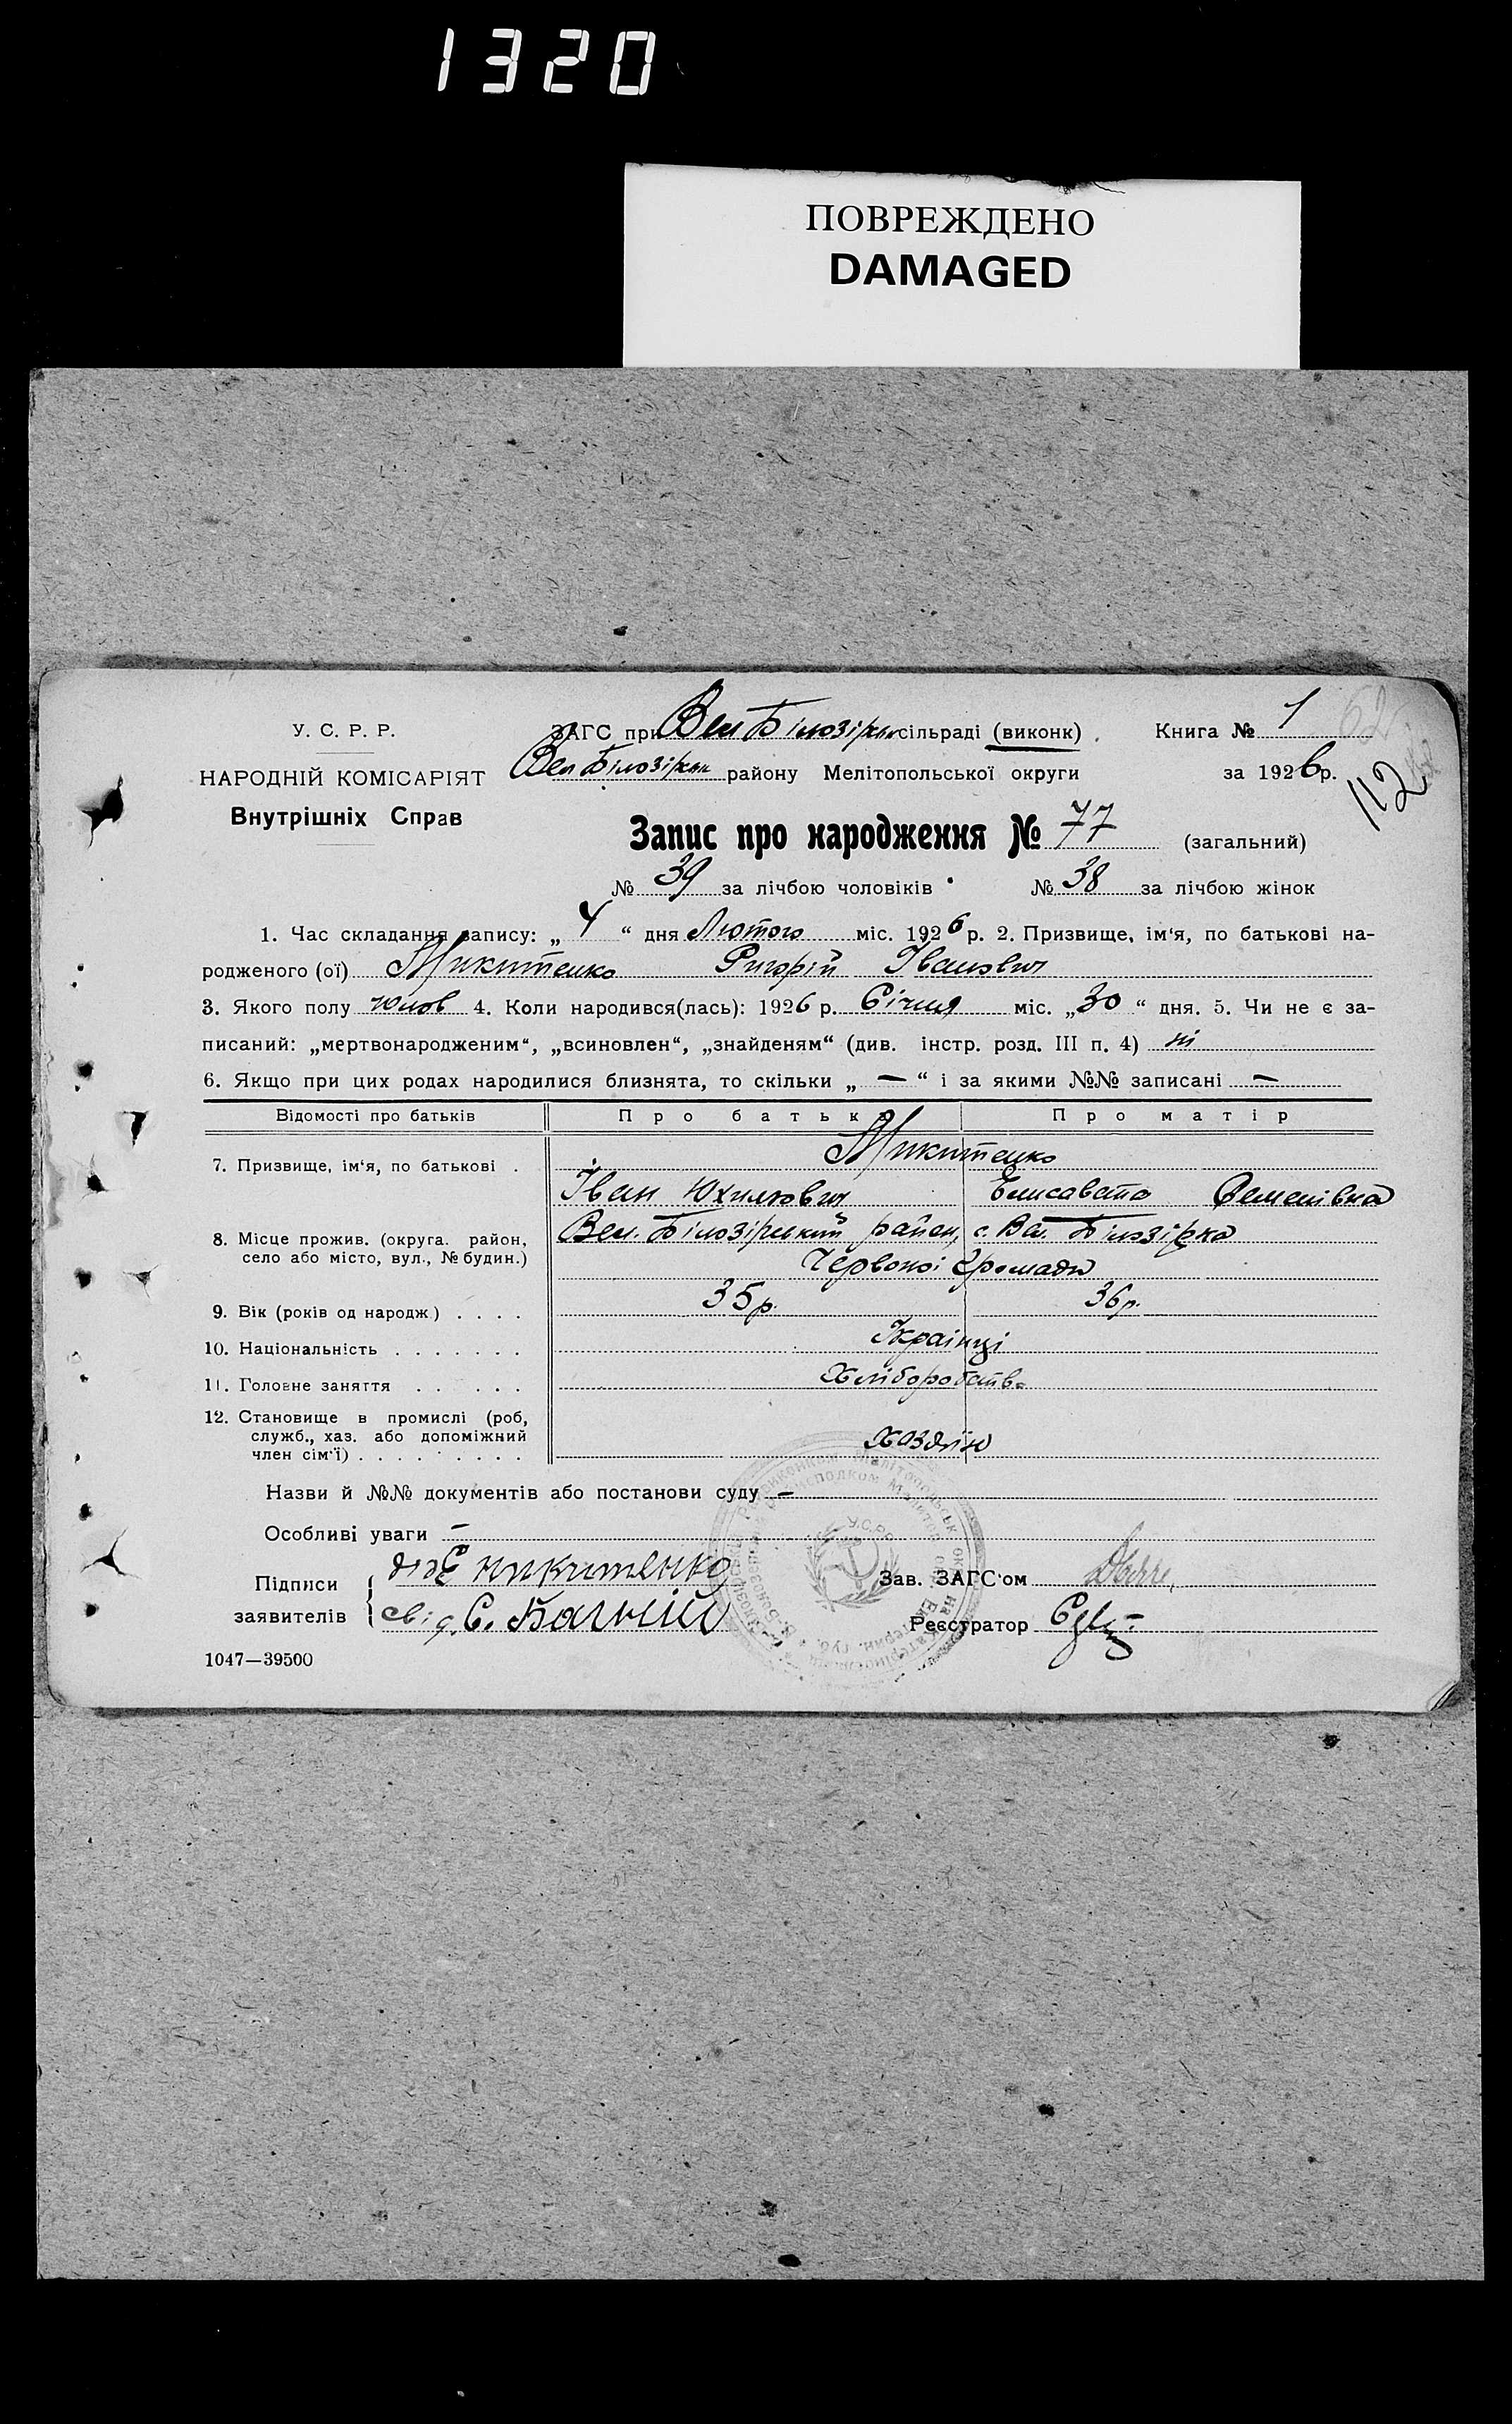 1320
ПОВРЕЖДЕНО
DAMAGED
У. С. Р. Р.
ЗАГС при Вел Білозірськ сільраді (виконк)
Книга № 1
62
НАРОДНІЙ КОМІСАРІЯТ
Вел Білозірськ району Мелітопольської округи
за 1926 р.
112
Внутрішніх Справ
Запис про народження № 77 (загальний)
№ 39 за лічбою чоловіків № 38 за лічбою жінок
1. Час складання запису: „ 4 “ дня Лютого міс. 1926 р. 2. Призвище, ім‘я, по батькові на-
родженого (ої) Микитенко Григорій Іванович
3. Якого полу чолов 4. Коли народився(лась): 1926 р. Січня міс. „30“ дня. 5. Чи не є за-
писаний: „мертвонародженим“, „всиновлен“, „знайденям“ (див. інстр. розд. III п. 4) ні
6. Якщо при цих родах народилися близнята, то скільки „ — “ і за якими №№ записані —
Відомості про батьків
Про батька
Про матір
Микитенко
7. Призвище, ім‘я, по батькові .
Іван Юхимович Елисавета Семенівна
8. Місце прожив. (округа. район,
село або місто, вул., № будин.)
Вел. Білозірський район, с. Вел. Білозірка
Червоної Громади
9. Вік (років од народж) . . . . 35 р. 36 р.
10. Національність . . . . . . . Українці
11. Головне заняття . . . . . Хліборобство
12. Становище в промислі (роб,
служб., хаз. або допоміжний
член сім‘ї) . . . . . . . . . Хазяїн
Назви й №№ документів або постанови суду —
Особливі уваги —
Підписи
заявителів
Е Микитенко
свід. С. Багній
Зав. ЗАГС‘ом
Реєстратор
У.С.Р.Р.
1047—39500